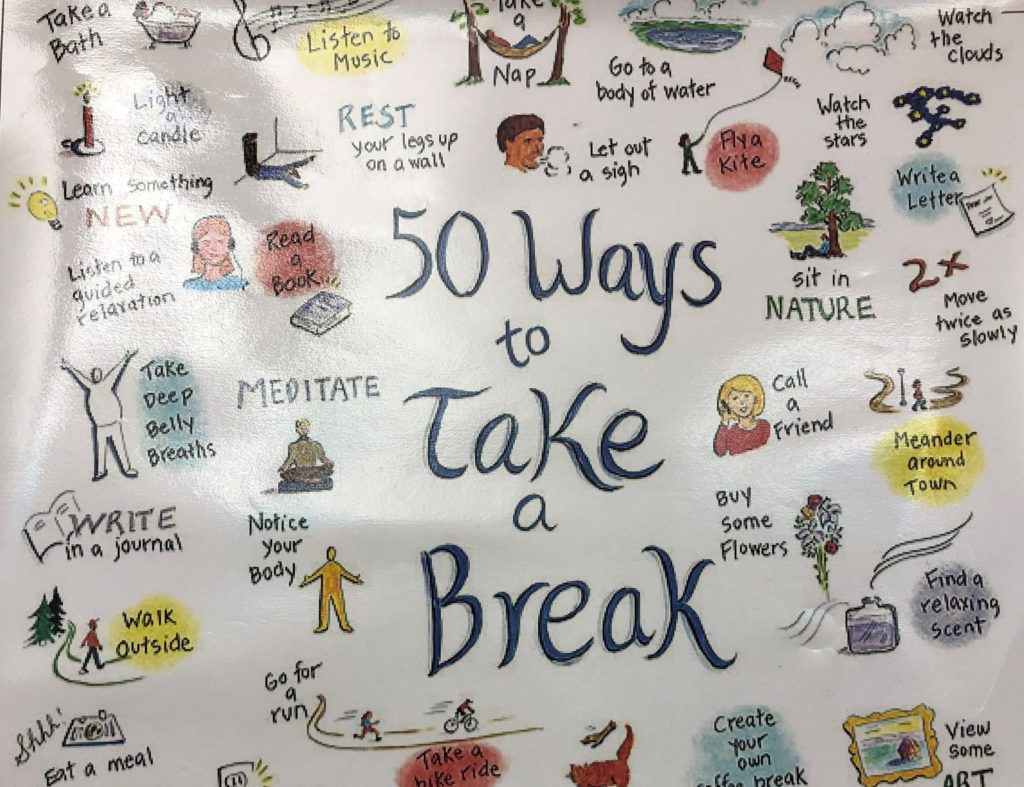 Take a
Bath
Listen to
Music
Take
a
Nap
Go to a
body of water
Watch
the
clouds
Light
a
candle
REST
your legs up
on a wall
Let out
a sigh
Fly a
Kite
Watch
the
stars
Learn something
NEW
Write a
Letter
Listen to a
guided
relaxation
Read
a
Book
50 Ways
to
Take
a
Break
Sit in
NATURE
2x
Move
twice as
slowly
Take
Deep
Belly
Breaths
MEDITATE
Call
a
Friend
Meander
around
Town
WRITE
in a journal
Notice
your
Body
Buy
some
Flowers
Find a
relaxing
scent
Walk
outside
Go for
a
run
Shhh!
Eat a meal
Take a
bike ride
Create
your
own
coffee break
View
some
ART